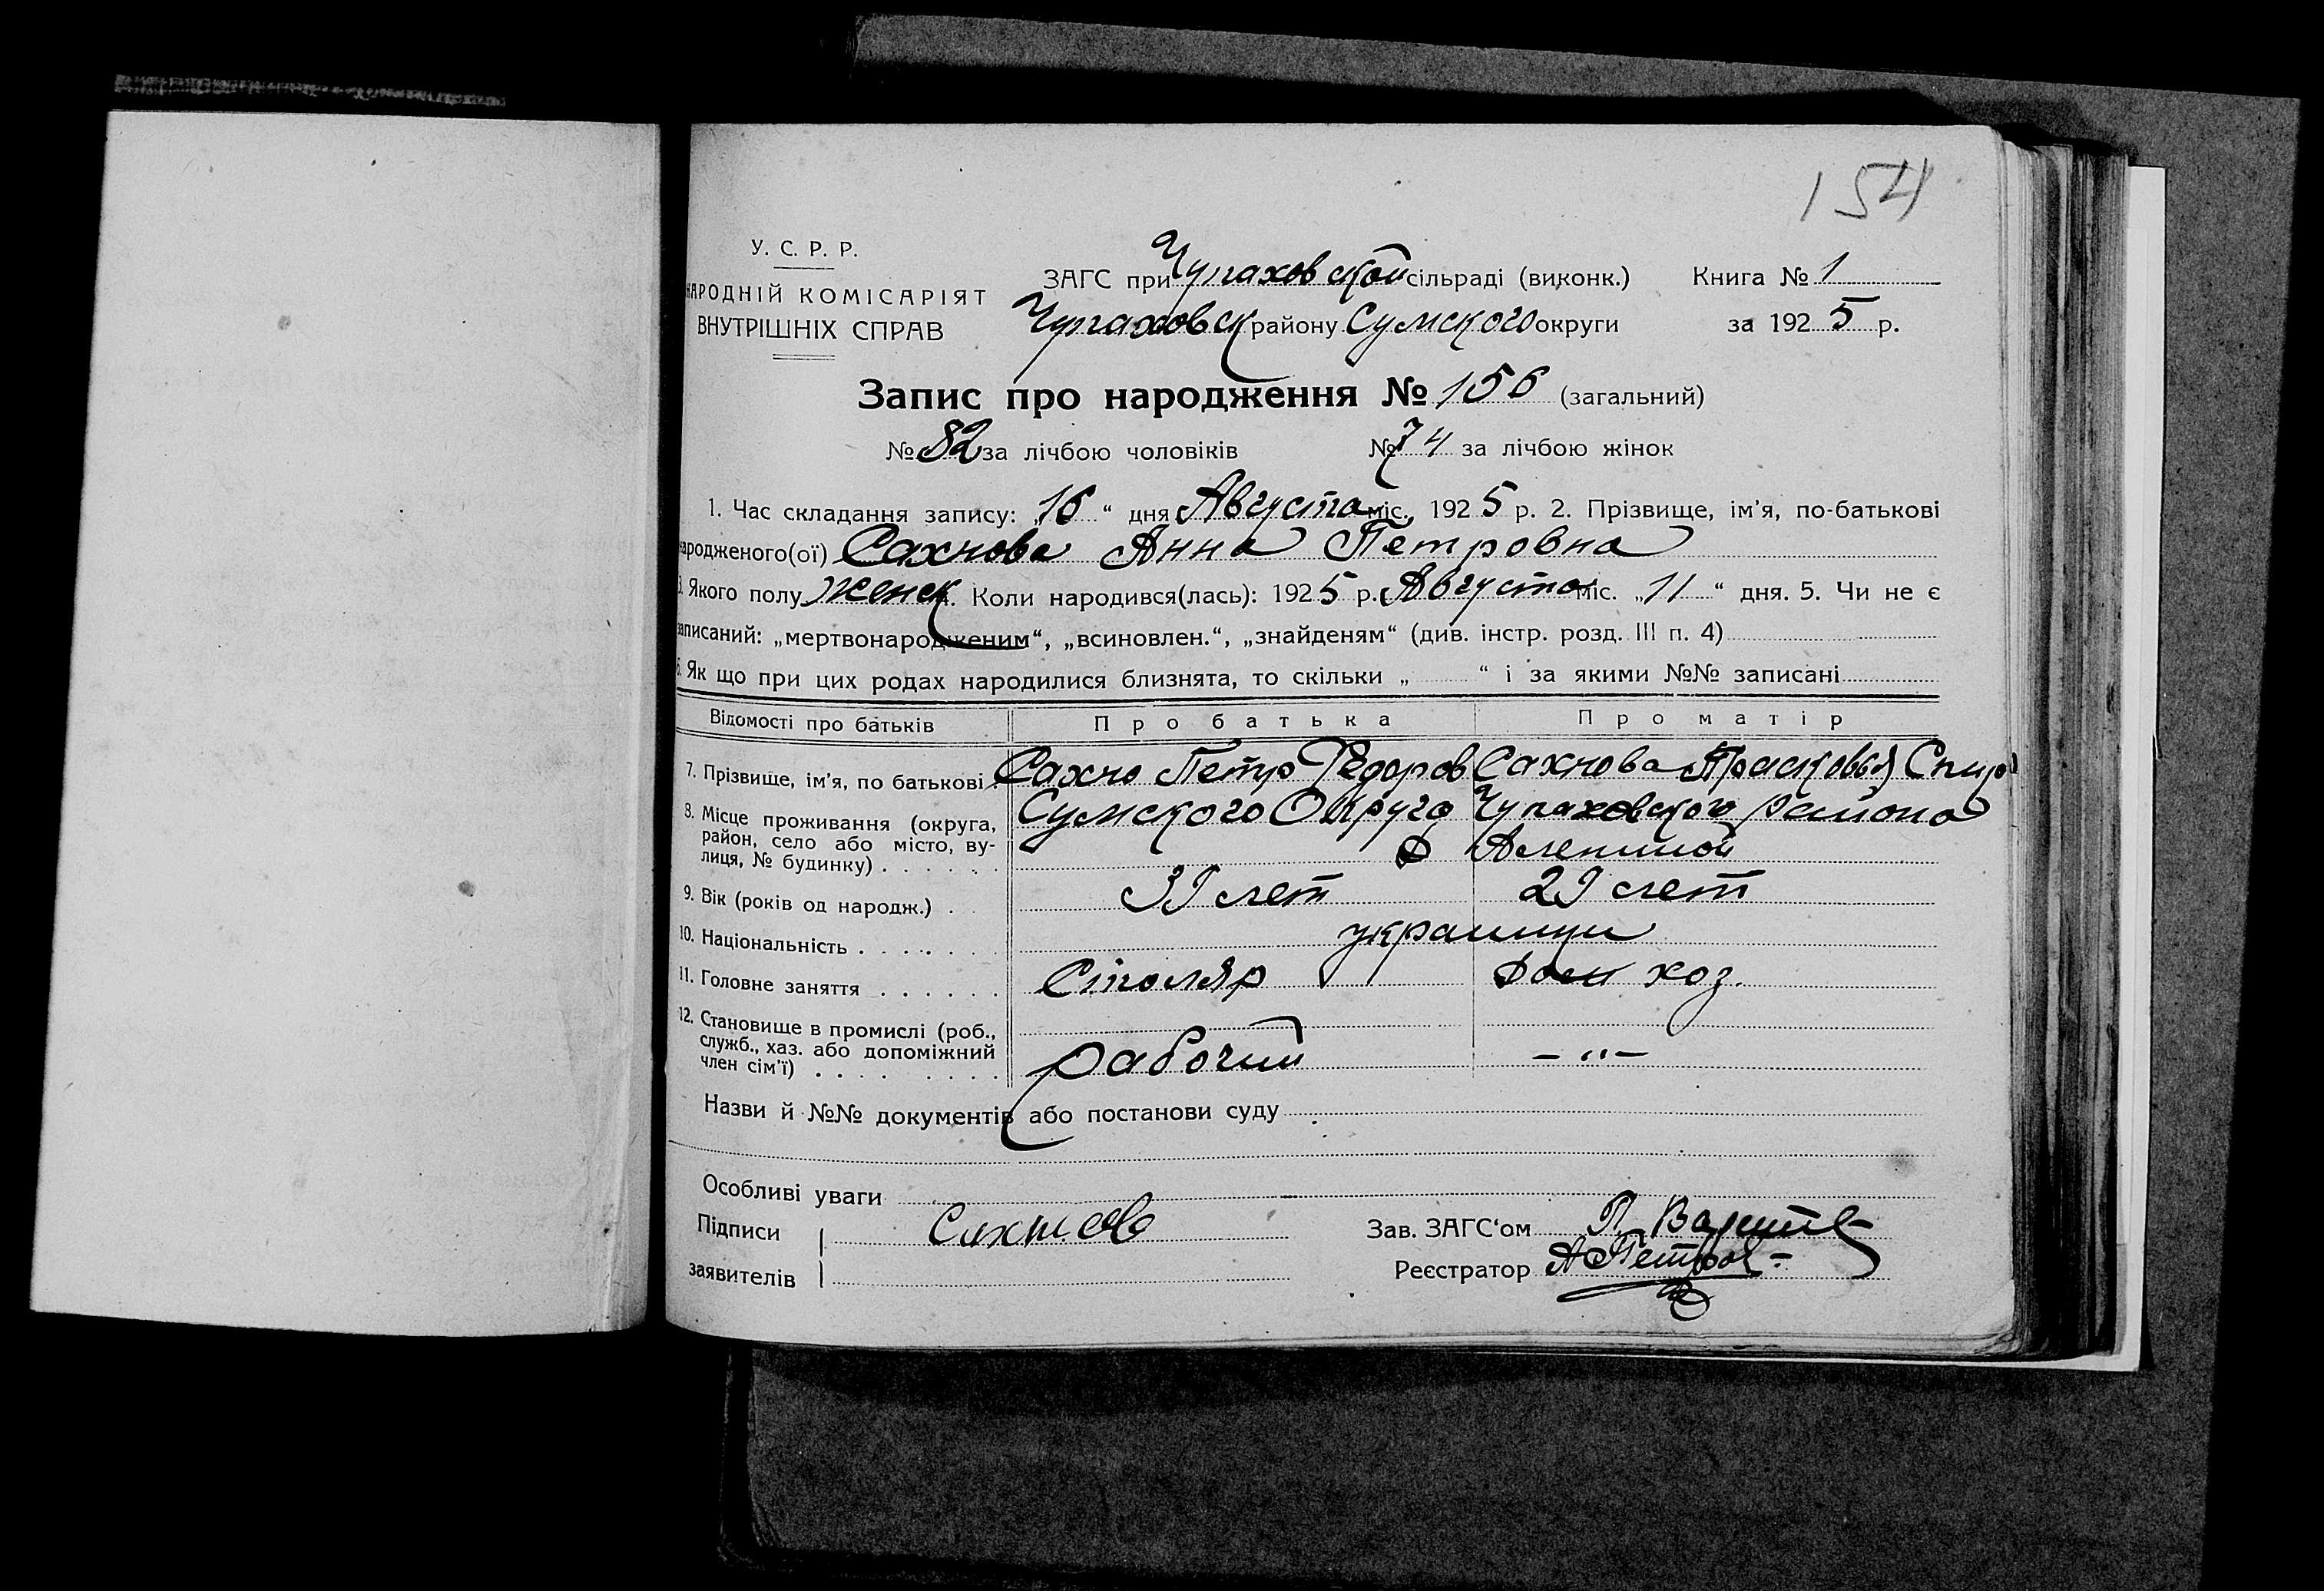 154
У. С. Р. Р.
НАРОДНІЙ КОМІСАРІЯТ
ВНУТРІШНІХ СПРАВ
ЗАГС при Чупаховской сільраді (виконк.)
Чупаховск району Сумского округи
Книга № 1
за 1925 р.
Запис про народження № 156 (загальний)
№ 82 за лічбою чоловіків № 74 за лічбою жінок
1. Час складання запису: „16“ дня Августа міс. 1925 р. 2. Прізвище, ім'я, по-батькові
народженого(ої) Сахнова Анна Петровна
3. Якого полу женск. Коли народився(лась): 1925 р. Августа міс. „11“ дня. 5. Чи не є
записаний: „мертвонародженим“, „всиновлен.“, „знайденям“ (див. інстр. розд. III п. 4)
6. Як що при цих родах народилися близнята, то скільки „ “ і за якими №№ записані
Відомості про батьків Про батька Про матір
7. Прізвище, ім'я, по батькові. Сахно Петр Федоров Сахнова Прасковья Спир
8. Місце проживання (округа, район, село або місто, вулиця, № будинку) Сумского Округа Чупаховского района
9. Вік (років од народж.) 39 лет 29 лет
10. Національність украинцы
11. Головне заняття Столяр Дом хоз.
12. Становище в промислі (роб., служб., хаз. або допоміжний член сім'ї) рабочий — " —
Назви й №№ документів або постанови суду
Особливі уваги
Підписи
заявителів
Зав. ЗАГС'ом П.
Реєстратор А Петров